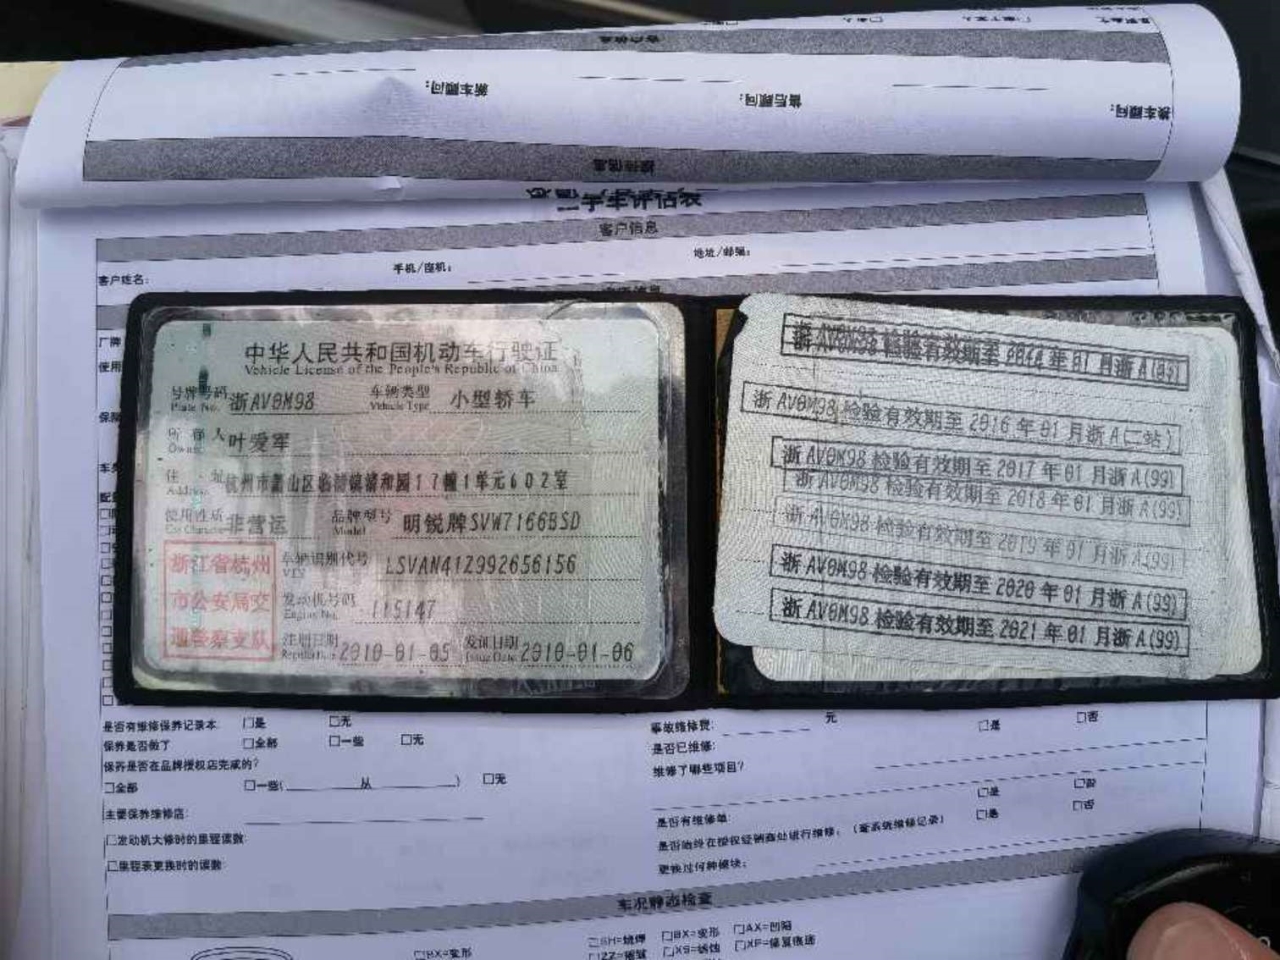 客户信息
新车顾问：
售后顾问：
换车顾问：
接待信息
二手车评估表
客户信息
客户姓名：
手机/座机：
地址/邮编：
中华人民共和国机动车行驶证
Vehicle License of the People's Republic of China
号牌号码 浙AV0M98 车辆类型 小型轿车
Plate No. Vehicle Type
所有人 叶爱军
Owner
住址 杭州市萧山区临浦镇 和园17幢1单元602室
Address
使用性质 非营运 品牌型号 明锐牌SVW7166BSD
Use Character Model
浙江省杭州
市公安局交
通警察支队
车辆识别代号 LSVAN41Z992656156
VIN
发动机号码 115147
Engine No.
注册日期 2010-01-05 发证日期 2010-01-06
Register Date Issue Date
浙AV0M98 检验有效期至 2014年01月浙A(99)
浙AV0M98 检验有效期至 2016年01月浙A(二站)
浙AV0M98 检验有效期至 2017年01月浙A(99)
浙AV0M98 检验有效期至 2018年01月浙A(99)
浙AV0M98 检验有效期至 2019年01月浙A(99)
浙AV0M98 检验有效期至 2020年01月浙A(99)
浙AV0M98 检验有效期至 2021年01月浙A(99)
是否有维修保养记录本： □是 □无
保养是否做了 □全部 □一些 □无
保养是否在品牌授权店完成的？
□全部 □一些( 从 ) □无
主要保养维修店：
□发动机大修时的里程读数：
□里程表更换时的读数：
事故维修费： 元 □是 □否
是否已维修：
维修了哪些项目？
□是 □否
是否有维修单： □是 □否
是否始终在授权经销商处进行维修：（查系统维修记录）
更换过何种模块：
车况静态检查
□BX=变形
□SH=烧焊 □BX=变形 □AX=凹陷
□ZZ=褶皱 □XS=锈蚀 □XF=修复痕迹